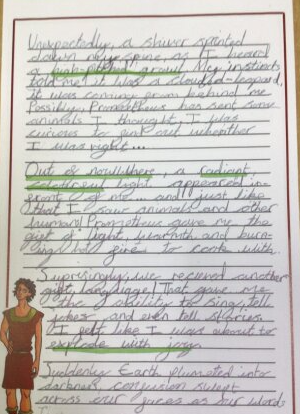 Unexpectedly, a shiver sprinted
down my spine, as I heard
a high-pitched growl. My instincts
told me it was a clouded-leopard,
it was coming from behind me
Possibly, Prometheus has sent some
animals I thought, I was
curious to find out wheather
I was right...
Out of nowhere, a radiant,
colourful light appeared in-
front of me... and just like
that I saw animals and other
humans! Prometheus gave me the
gift of light, warmth and burn-
ing hot fire to cook with.
Suprisingly, we recieved another
gift, language! That gave me
the ability to sing, tell
jokes and even tell stories.
I felt like I was about to
explode with joy.
Suddenly Earth plumeted into
darkness, confusion swept
across our faces as our world